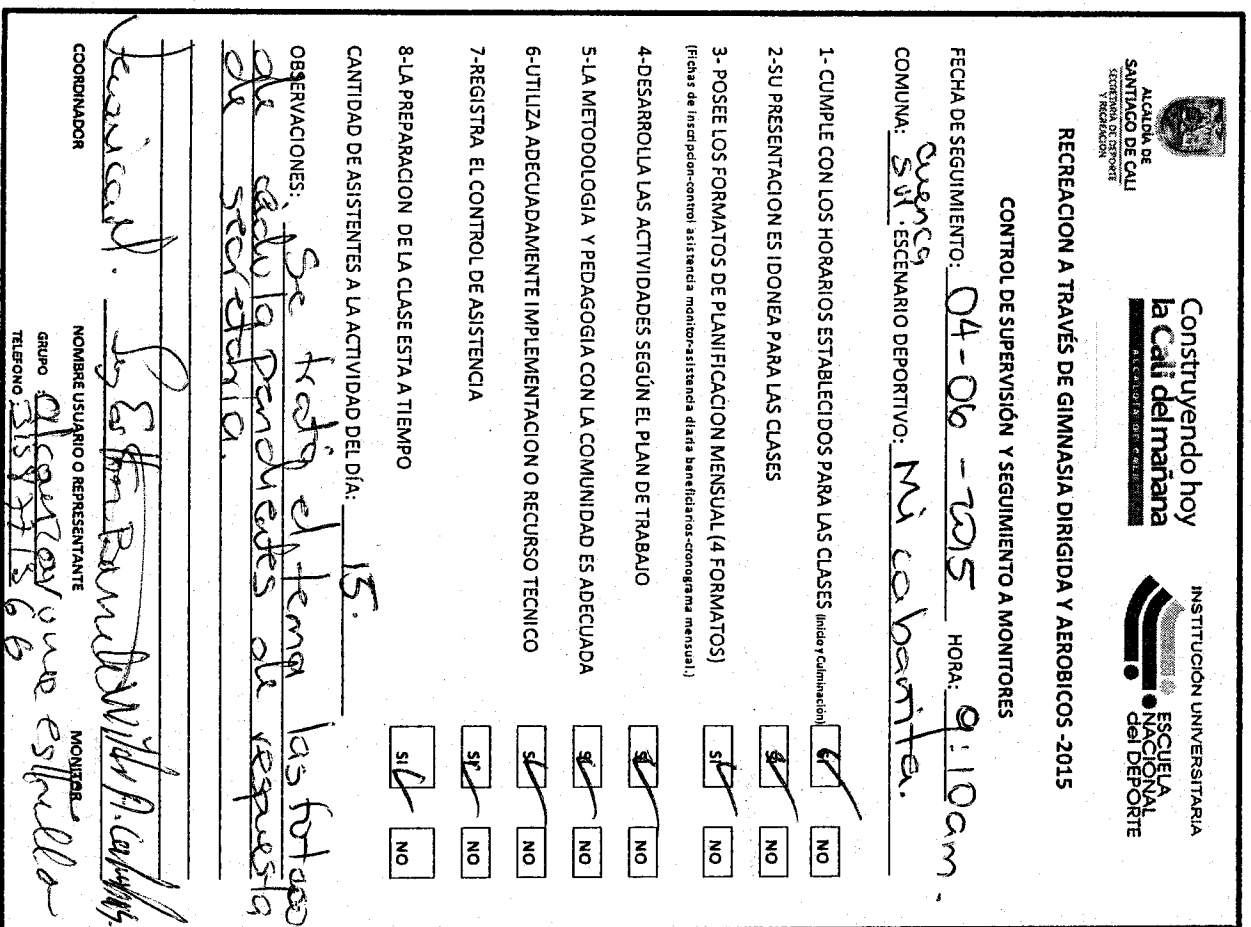 ALCALDÍA DE
SANTIAGO DE CALI
SECRETARIA DE DEPORTE
Y RECREACION
Construyendo hoy
la Cali del mañana
ALCALDÍA DE CALI
INSTITUCIÓN UNIVERSITARIA
ESCUELA
NACIONAL
del DEPORTE
RECREACION A TRAVÉS DE GIMNASIA DIRIGIDA Y AEROBICOS -2015
CONTROL DE SUPERVISIÓN Y SEGUIMIENTO A MONITORES
FECHA DE SEGUIMIENTO: 04-06-2015 HORA: 9:10am.
COMUNA: cuenca sur. ESCENARIO DEPORTIVO: Mi cabañita.
1- CUMPLE CON LOS HORARIOS ESTABLECIDOS PARA LAS CLASES (Inicio y Culminación) SI NO
2-SU PRESENTACION ES IDONEA PARA LAS CLASES SI NO
3- POSEE LOS FORMATOS DE PLANIFICACION MENSUAL (4 FORMATOS) SI NO
(Fichas de inscripcion-control asistencia monitor-asistencia diaria beneficiarios-cronograma mensual.)
4-DESARROLLA LAS ACTIVIDADES SEGÚN EL PLAN DE TRABAJO SI NO
5-LA METODOLOGIA Y PEDAGOGIA CON LA COMUNIDAD ES ADECUADA SI NO
6-UTILIZA ADECUADAMENTE IMPLEMENTACION O RECURSO TECNICO SI NO
7-REGISTRA EL CONTROL DE ASISTENCIA SI NO
8-LA PREPARACION DE LA CLASE ESTA A TIEMPO SI NO
CANTIDAD DE ASISTENTES A LA ACTIVIDAD DEL DÍA: 15.
OBSERVACIONES: Se trató el tema las fotocopias
de cedula pendientes de respuesta
de secretaria.
COORDINADOR NOMBRE USUARIO O REPRESENTANTE MONITOR
GRUPO:
TELEFONO: 3158771366